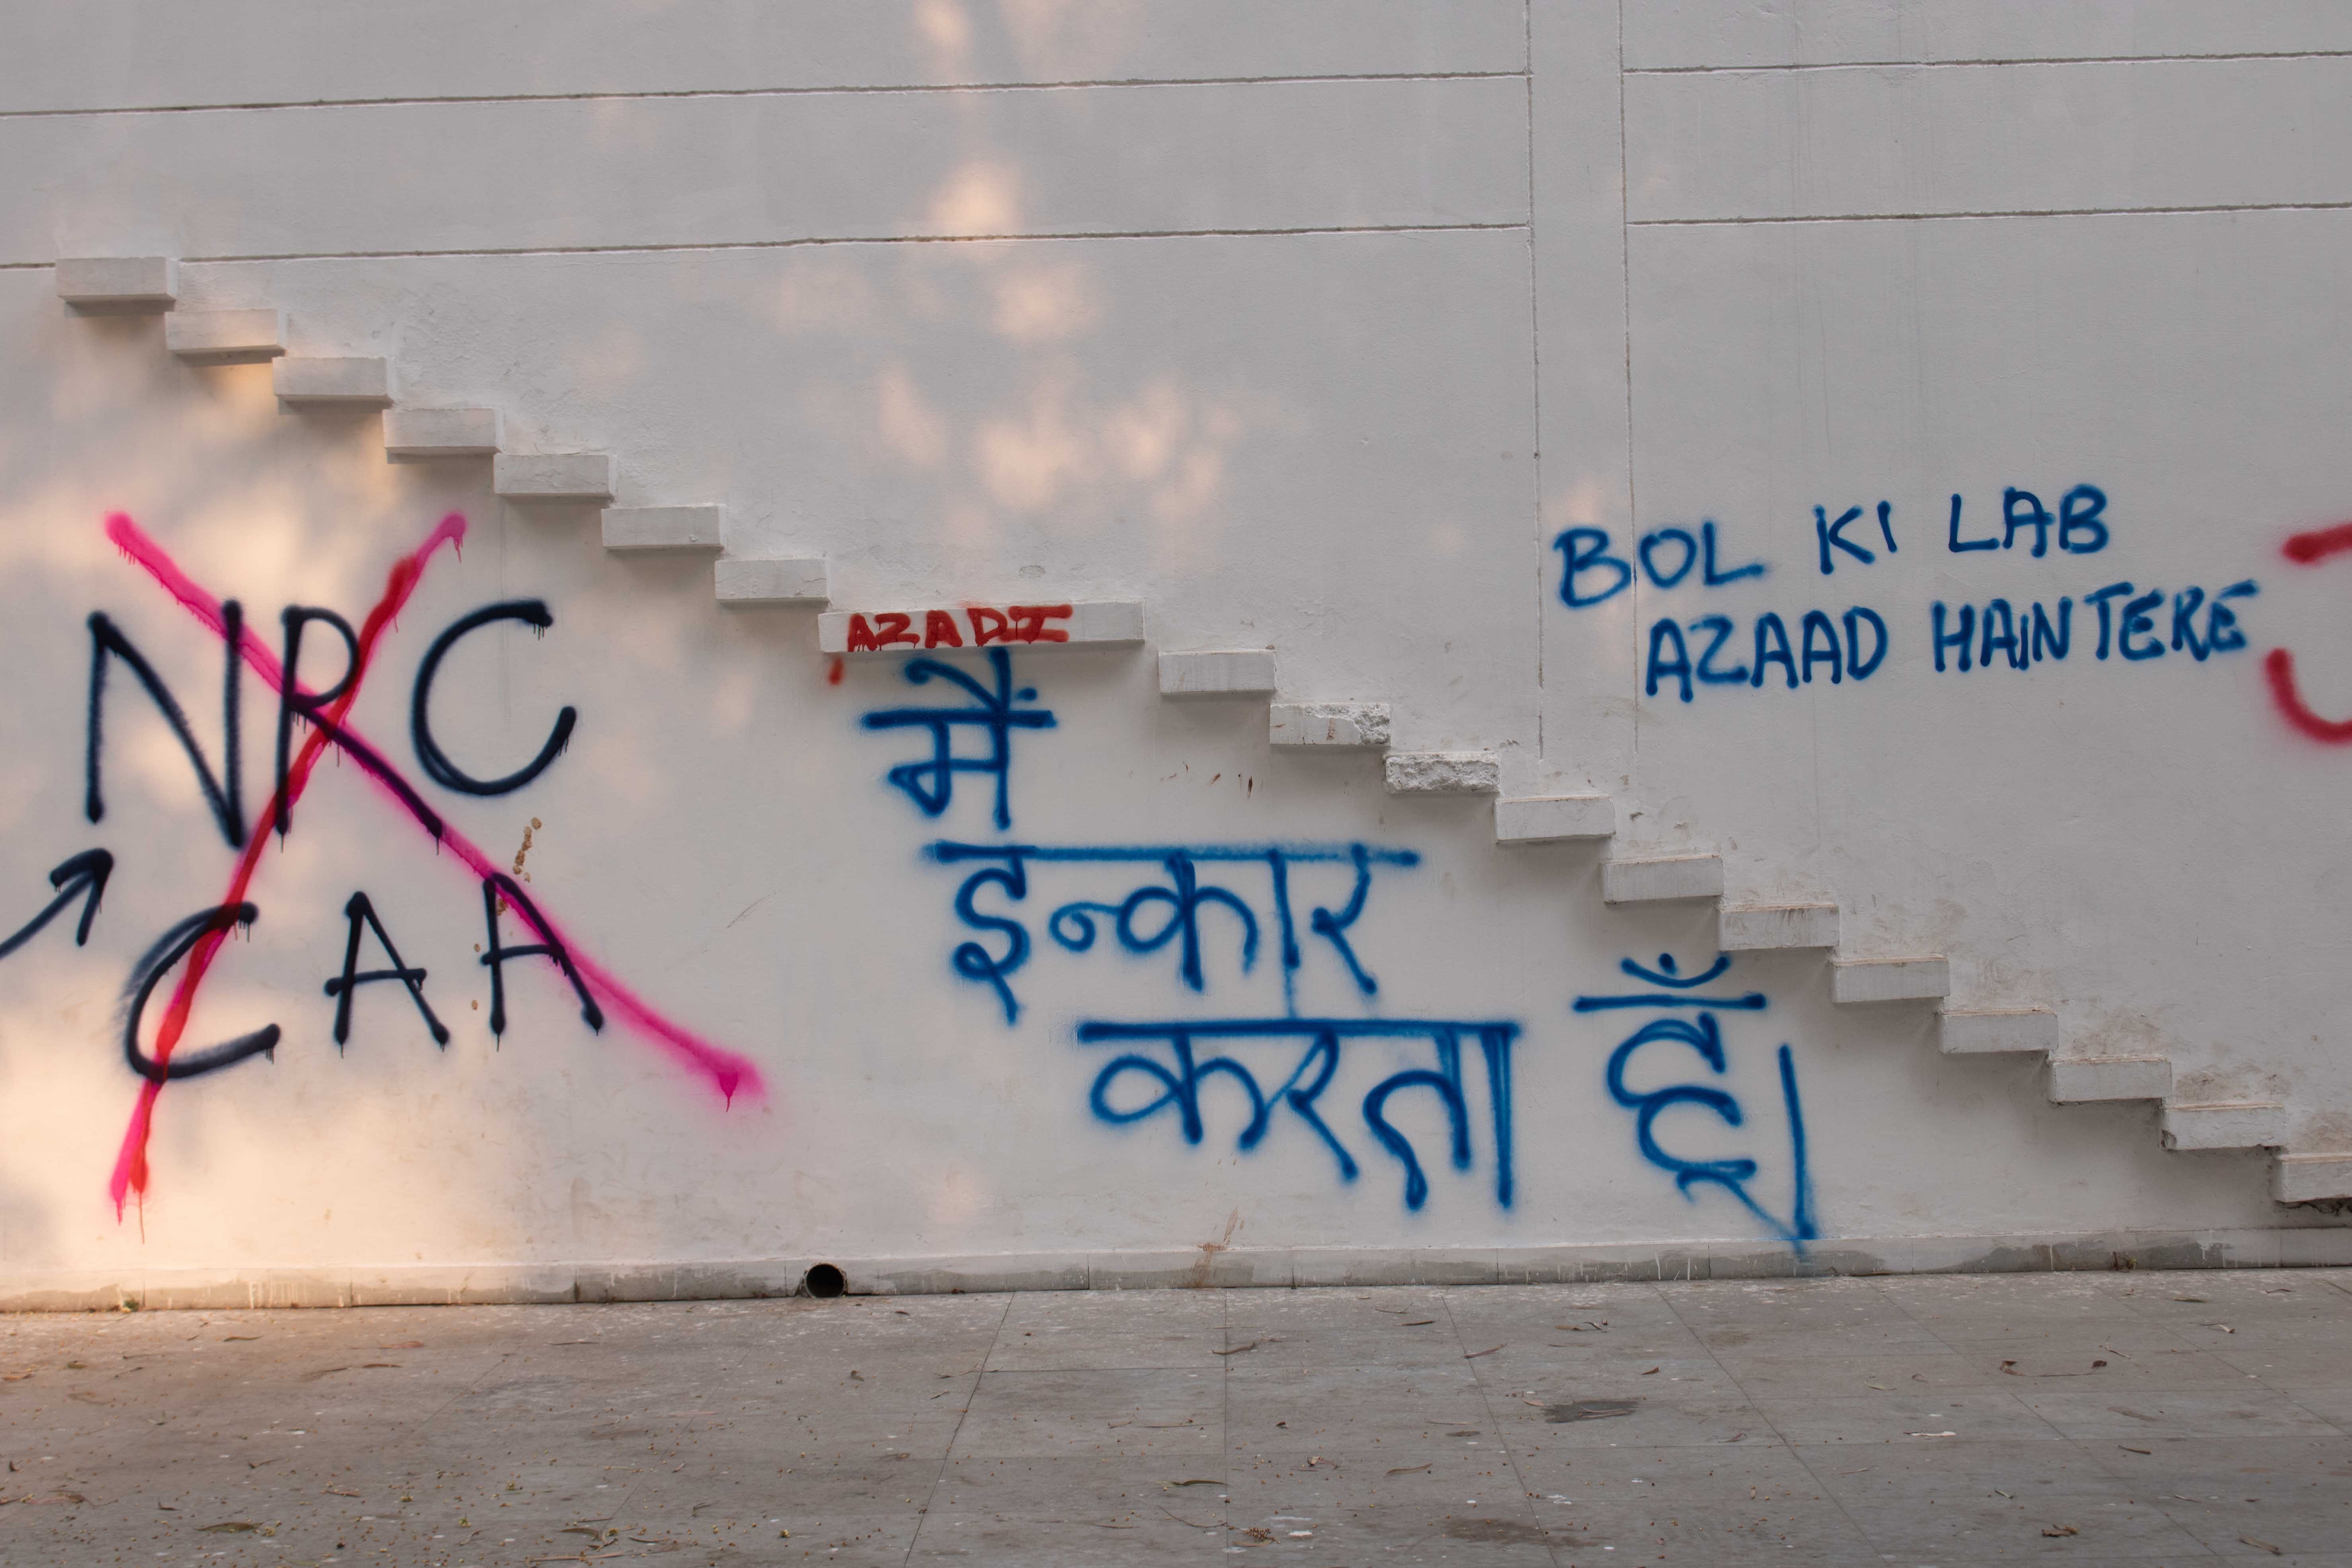 NRC
CAA
AZADI
मैं
इन्कार
करता हूँ।
BOL KI LAB
AZAAD HAIN TERE